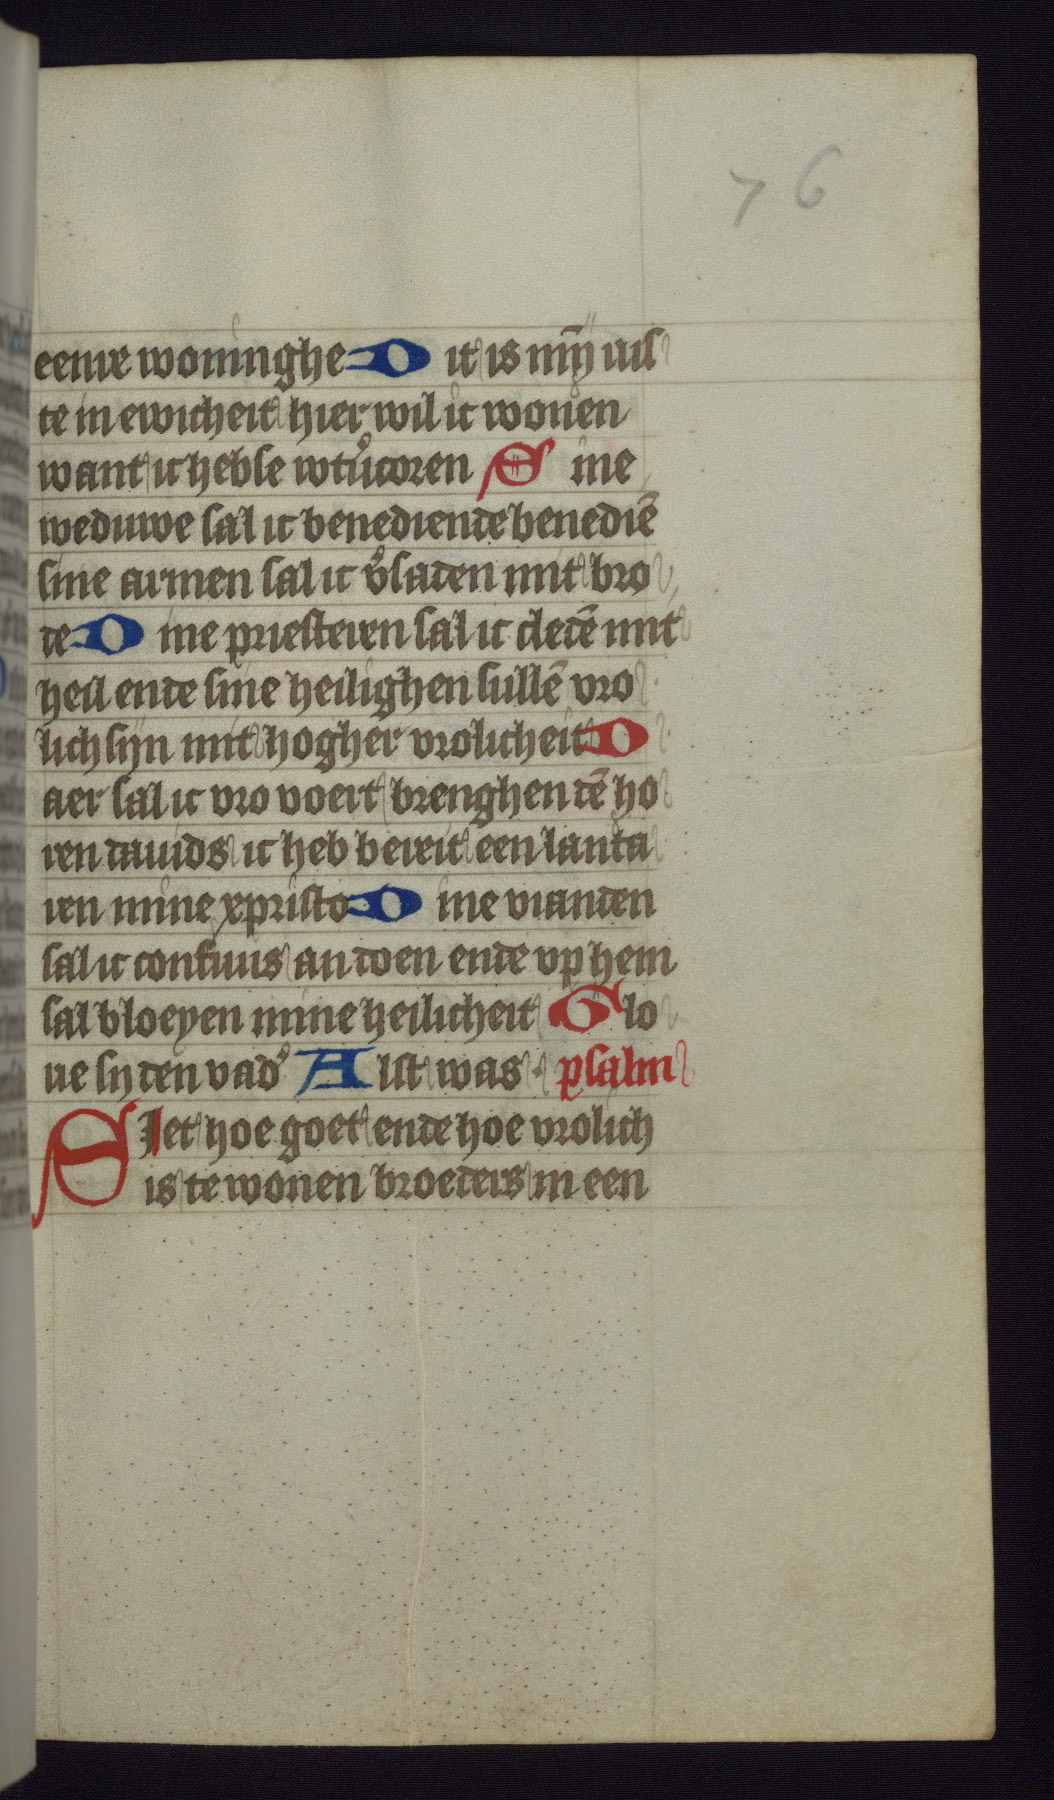 76
eenre woninghe D it is mȳ rus
te in ewicheit hier wil ic wonen
want ic hebse wtvͦcoren S ine
weduwe sal ic benediende benediē
sine armen sal ic vͦsaden mit bro
de D ine priesteren sal ic cledē mit
heil ende sine heilighen sullē vro
lich sijn mit hogher vrolicheit D
aer sal ic vro voert brenghen dē ho
ren dauids ic heb bereit een lanta
ren mine xpristo D ine vianden
sal ic confuus an doen ende vp hem
sal bloeyen mine heilicheit G lo
rie sy den vadͦ A lst was · psalm
Siet hoe goet ende hoe vrolich
is te wonen broeders in een